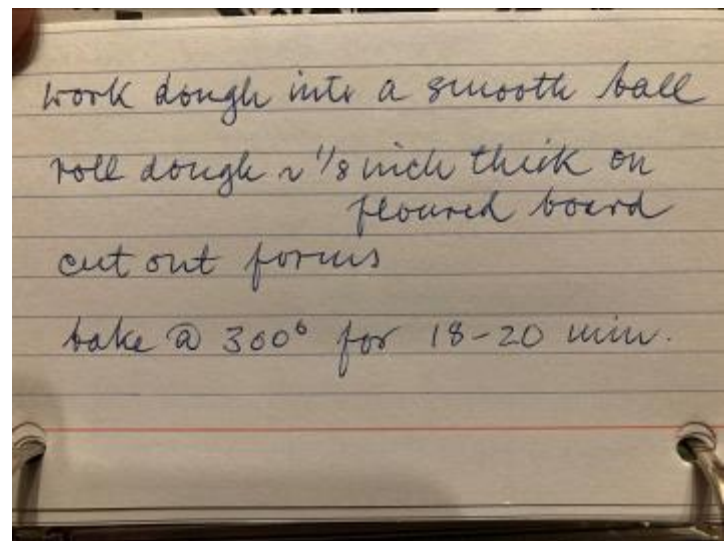 work dough into a smooth ball
roll dough ~ 1/8 inch thick on
floured board
cut out forms
bake @ 300° for 18-20 min.